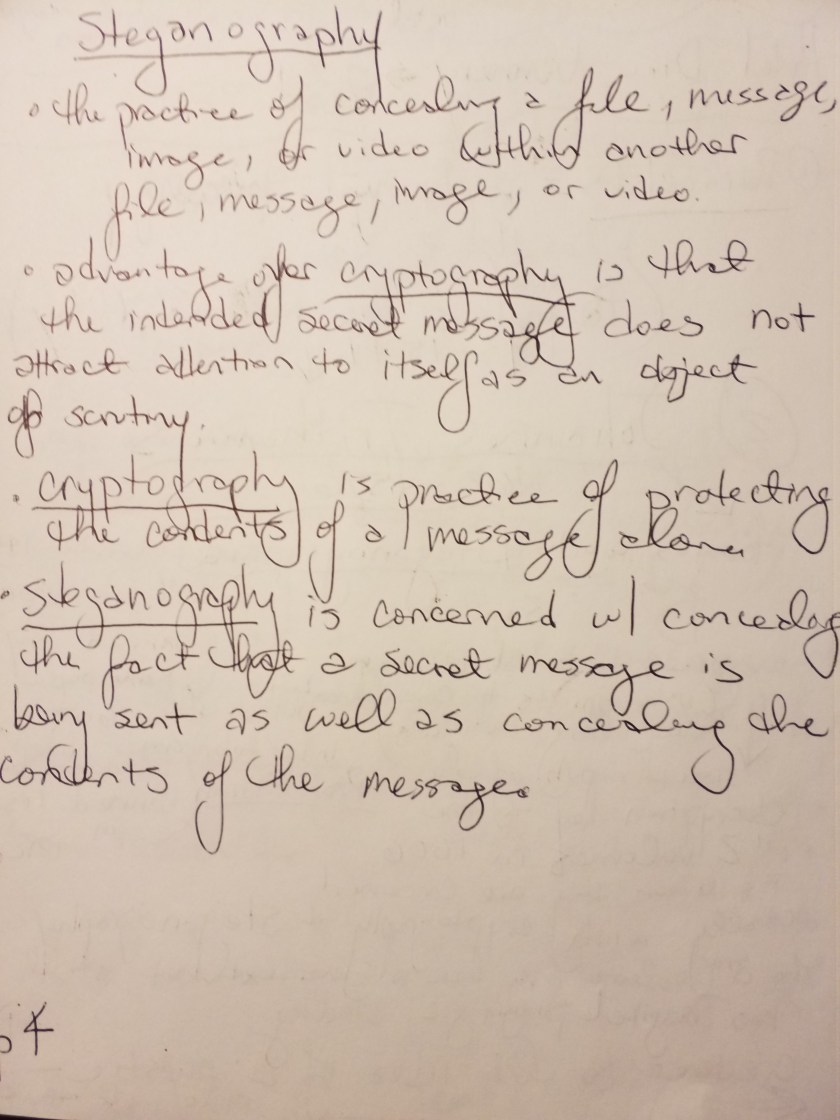 Steganography
• the practice of concealing a file, message,
image, or video within another
file, message, image, or video.
• advantage over cryptography is that
the intended secret message does not
attract attention to itself as an object
of scrutiny.
• cryptography is practice of protecting
the contents of a message alone.
• steganography is concerned w/ concealing
the fact that a secret message is
being sent as well as concealing the
contents of the message.
p4